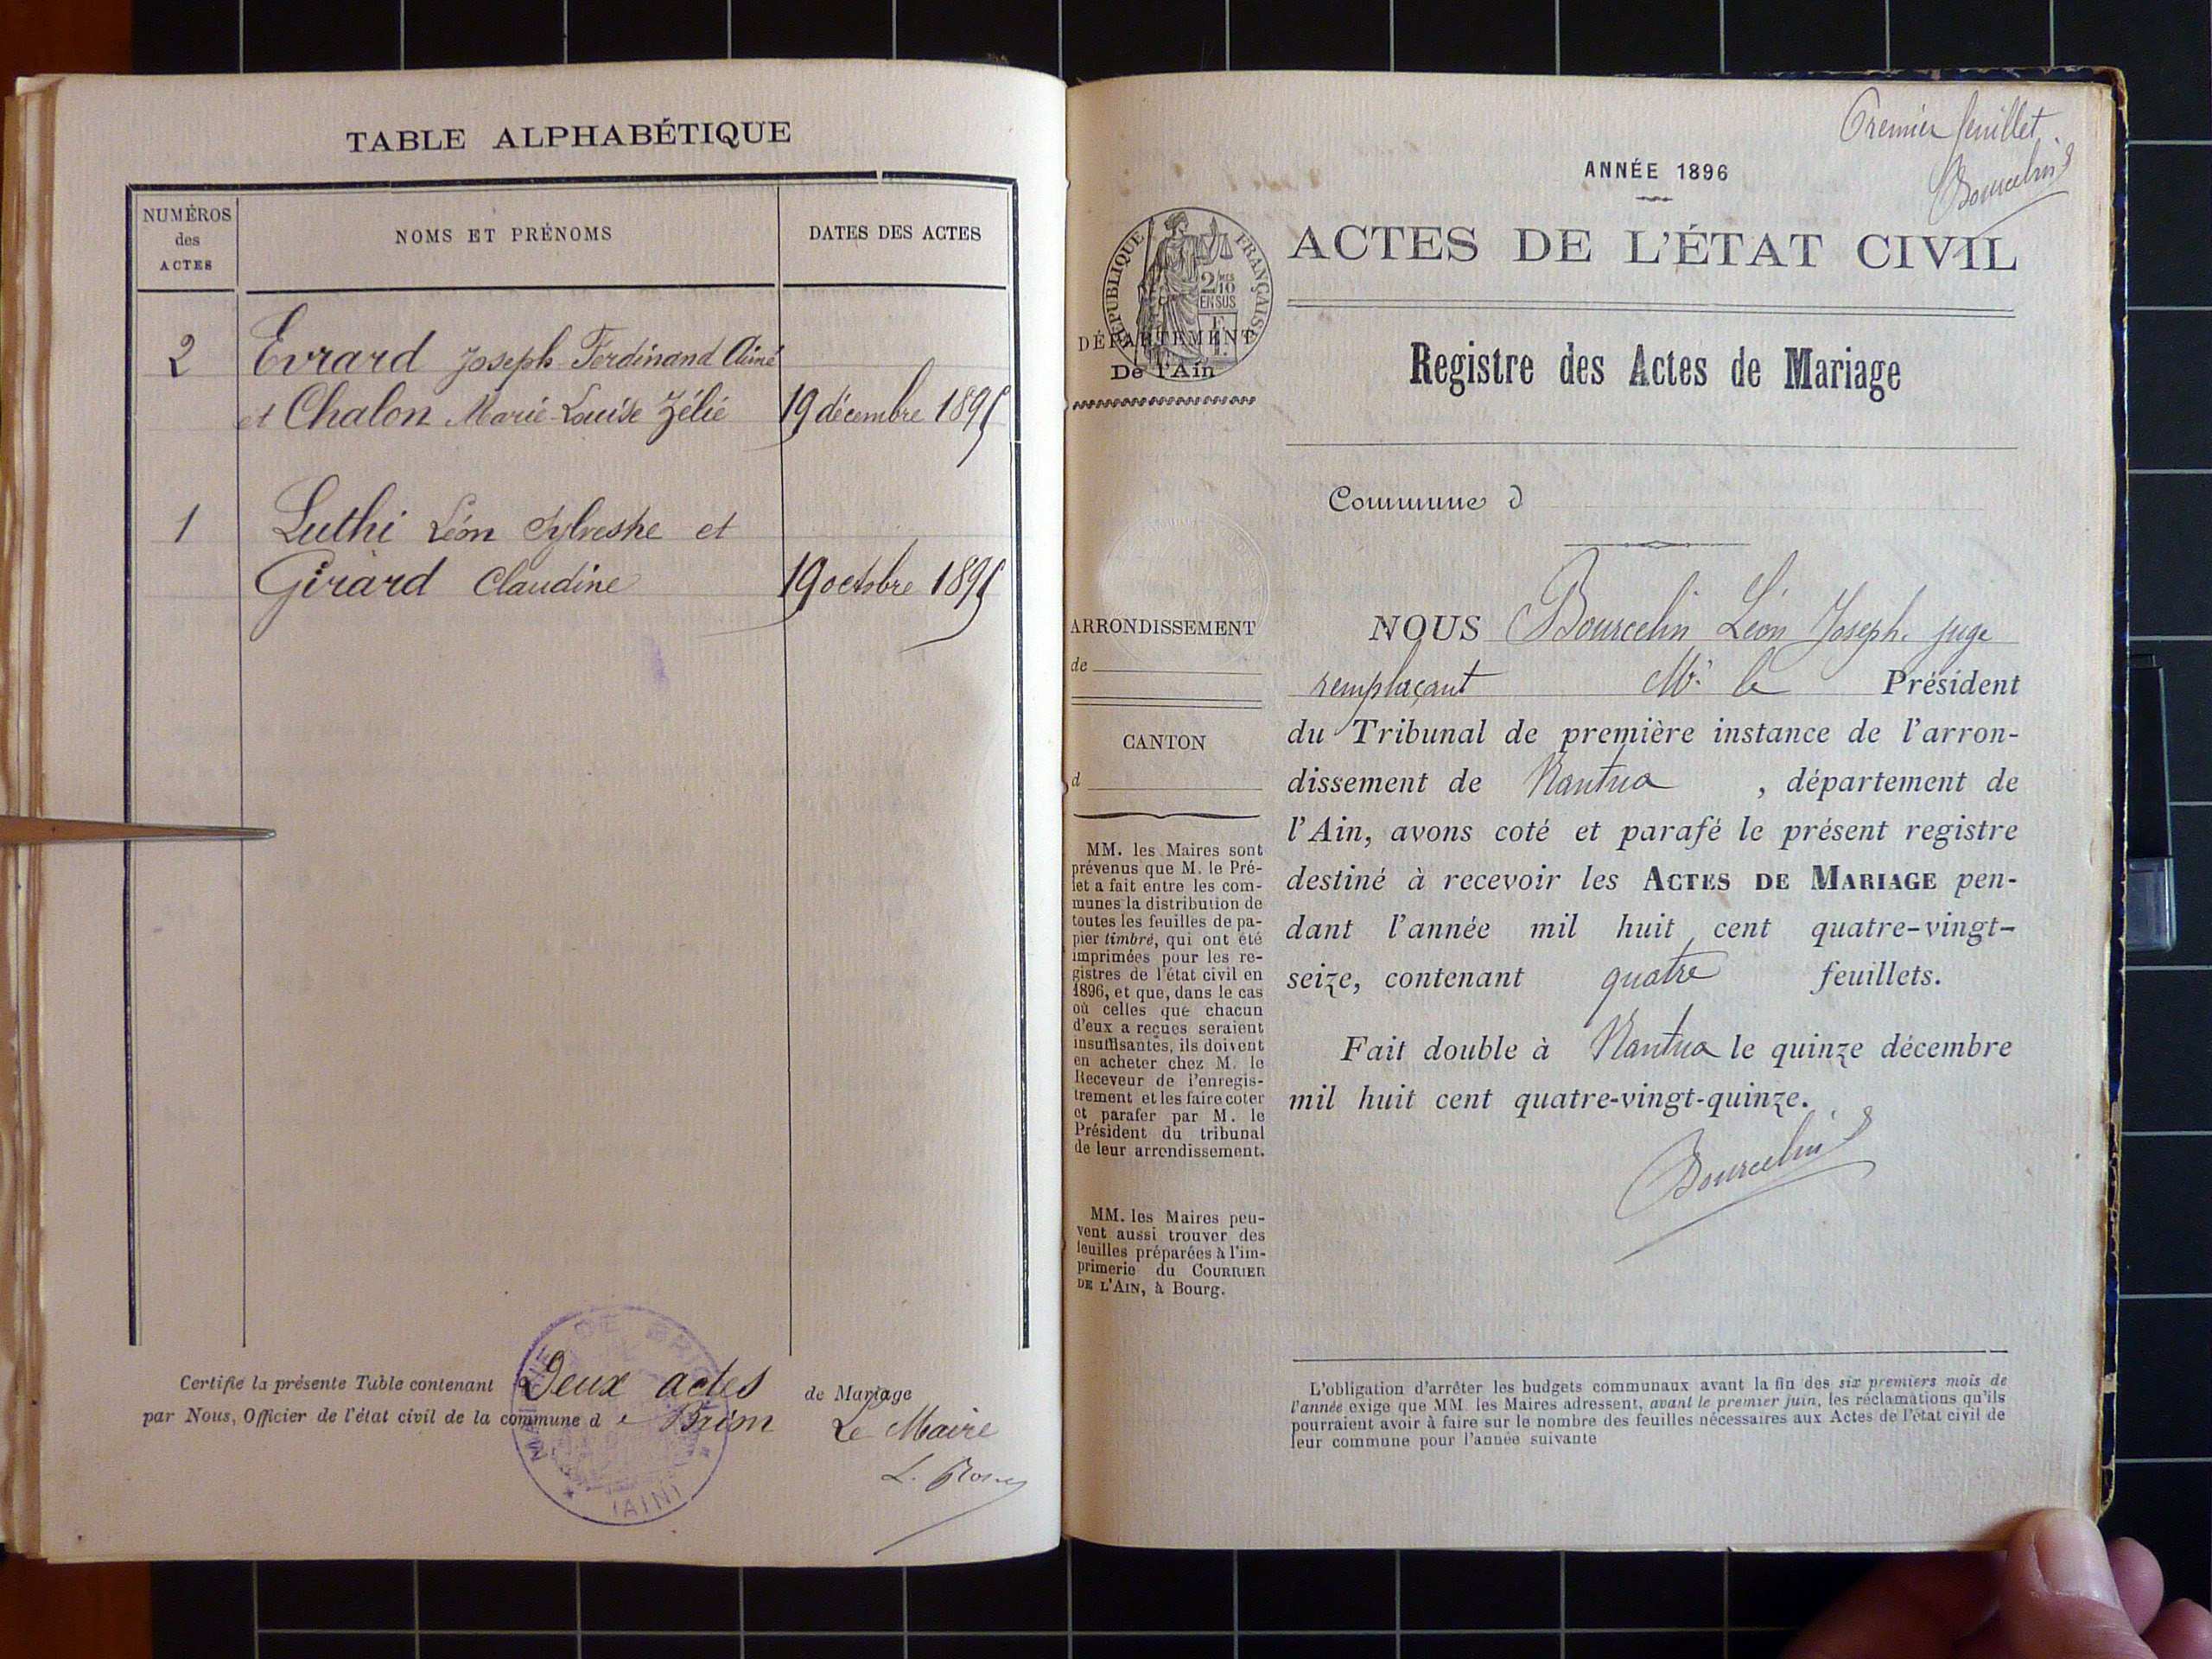 TABLE ALPHABÉTIQUE
NUMÉROS
des
ACTES
NOMS ET PRÉNOMS
DATES DES ACTES
2
Evrard Joseph Ferdinand Aimé
et Chalon Marie-Louise Zélie 19 décembre 1895
1
Luthi Léon Sylvestre et
Girard Claudine 19 octobre 1895
Certifie la présente Table contenant Deux actes de Mariage
par Nous, Officier de l'état civil de la commune d e Brion
Le Maire
MAIRIE DE BRION
(AIN)
Premier feuillet
Bourcelin
ANNÉE 1896
ACTES DE L'ÉTAT CIVIL
RÉPUBLIQUE FRANÇAISE
2/10
EN SUS
DÉPARTEMENT
De l'Ain
Registre des Actes de Mariage
Commune d
ARRONDISSEMENT
de
CANTON
d
MM. les Maires sont
prévenus que M. le Pré-
fet a fait entre les com-
munes la distribution de
toutes les feuilles de pa-
pier timbré, qui ont été
imprimées pour les re-
gistres de l'état civil en
1896, et que, dans le cas
où celles que chacun
d'eux a reçues seraient
insuffisantes, ils doivent
en acheter chez M. le
Receveur de l'enregis-
trement et les faire coter
et parafer par M. le
Président du tribunal
de leur arrondissement.
MM. les Maires peu-
vent aussi trouver des
feuilles préparées à l'im-
primerie du COURRIER
DE L'AIN, à Bourg.
NOUS Bourcelin Léon Joseph, juge
remplaçant Mr. le Président
du Tribunal de première instance de l'arron-
dissement de Nantua , département de
l'Ain, avons coté et parafé le présent registre
destiné à recevoir les ACTES DE MARIAGE pen-
dant l'année mil huit cent quatre-vingt-
seize, contenant quatre feuillets.
Fait double à Nantua le quinze décembre
mil huit cent quatre-vingt-quinze.
Bourcelin
L'obligation d'arrêter les budgets communaux avant la fin des six premiers mois de
l'année exige que MM. les Maires adressent, avant le premier juin, les réclamations qu'ils
pourraient avoir à faire sur le nombre des feuilles nécessaires aux Actes de l'état civil de
leur commune pour l'année suivante